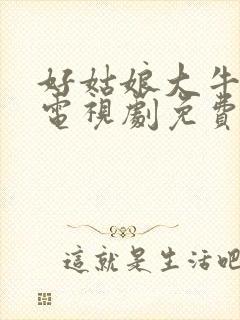 好姑娘大牛
電視劇免費
這就是生活吧